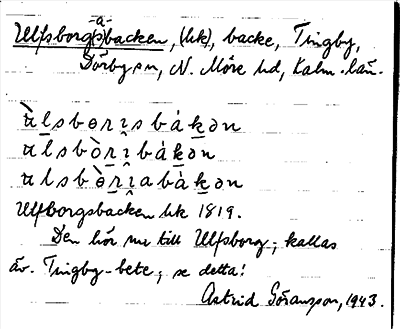 Ulfsborg(s)backen, (hk), backe, Tingby,
-a-
Dörby sn, N. Möre hd, Kalm. län.
ùlsborisbákən
ulsbòrîbákən
ulsbòrîabàkən
Ulfborgsbacken hk 1819.
Den hör nu till Ulfsborg; kallas
äv. Tingby-bete, se detta!
Astrid Göransson, 1943.